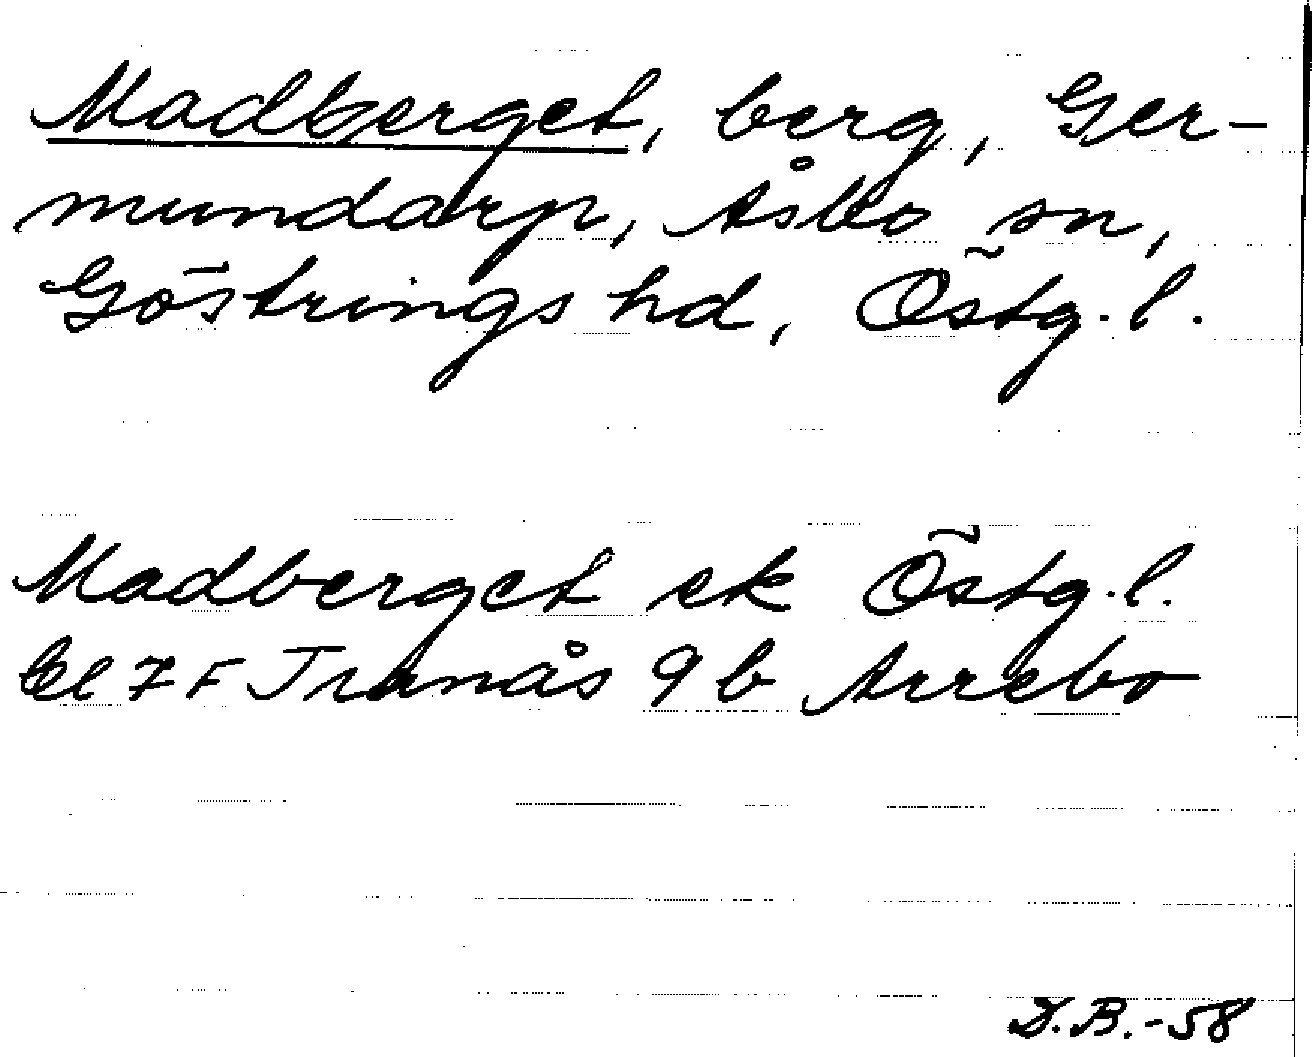 Madberget, berg, Ger-
mundarp, Åsbo sn,
Göstrings hd, Östg. l.
Madberget ek Östg. l.
Bl 7 F Tranås 9 b Arrebo
D.B.-58